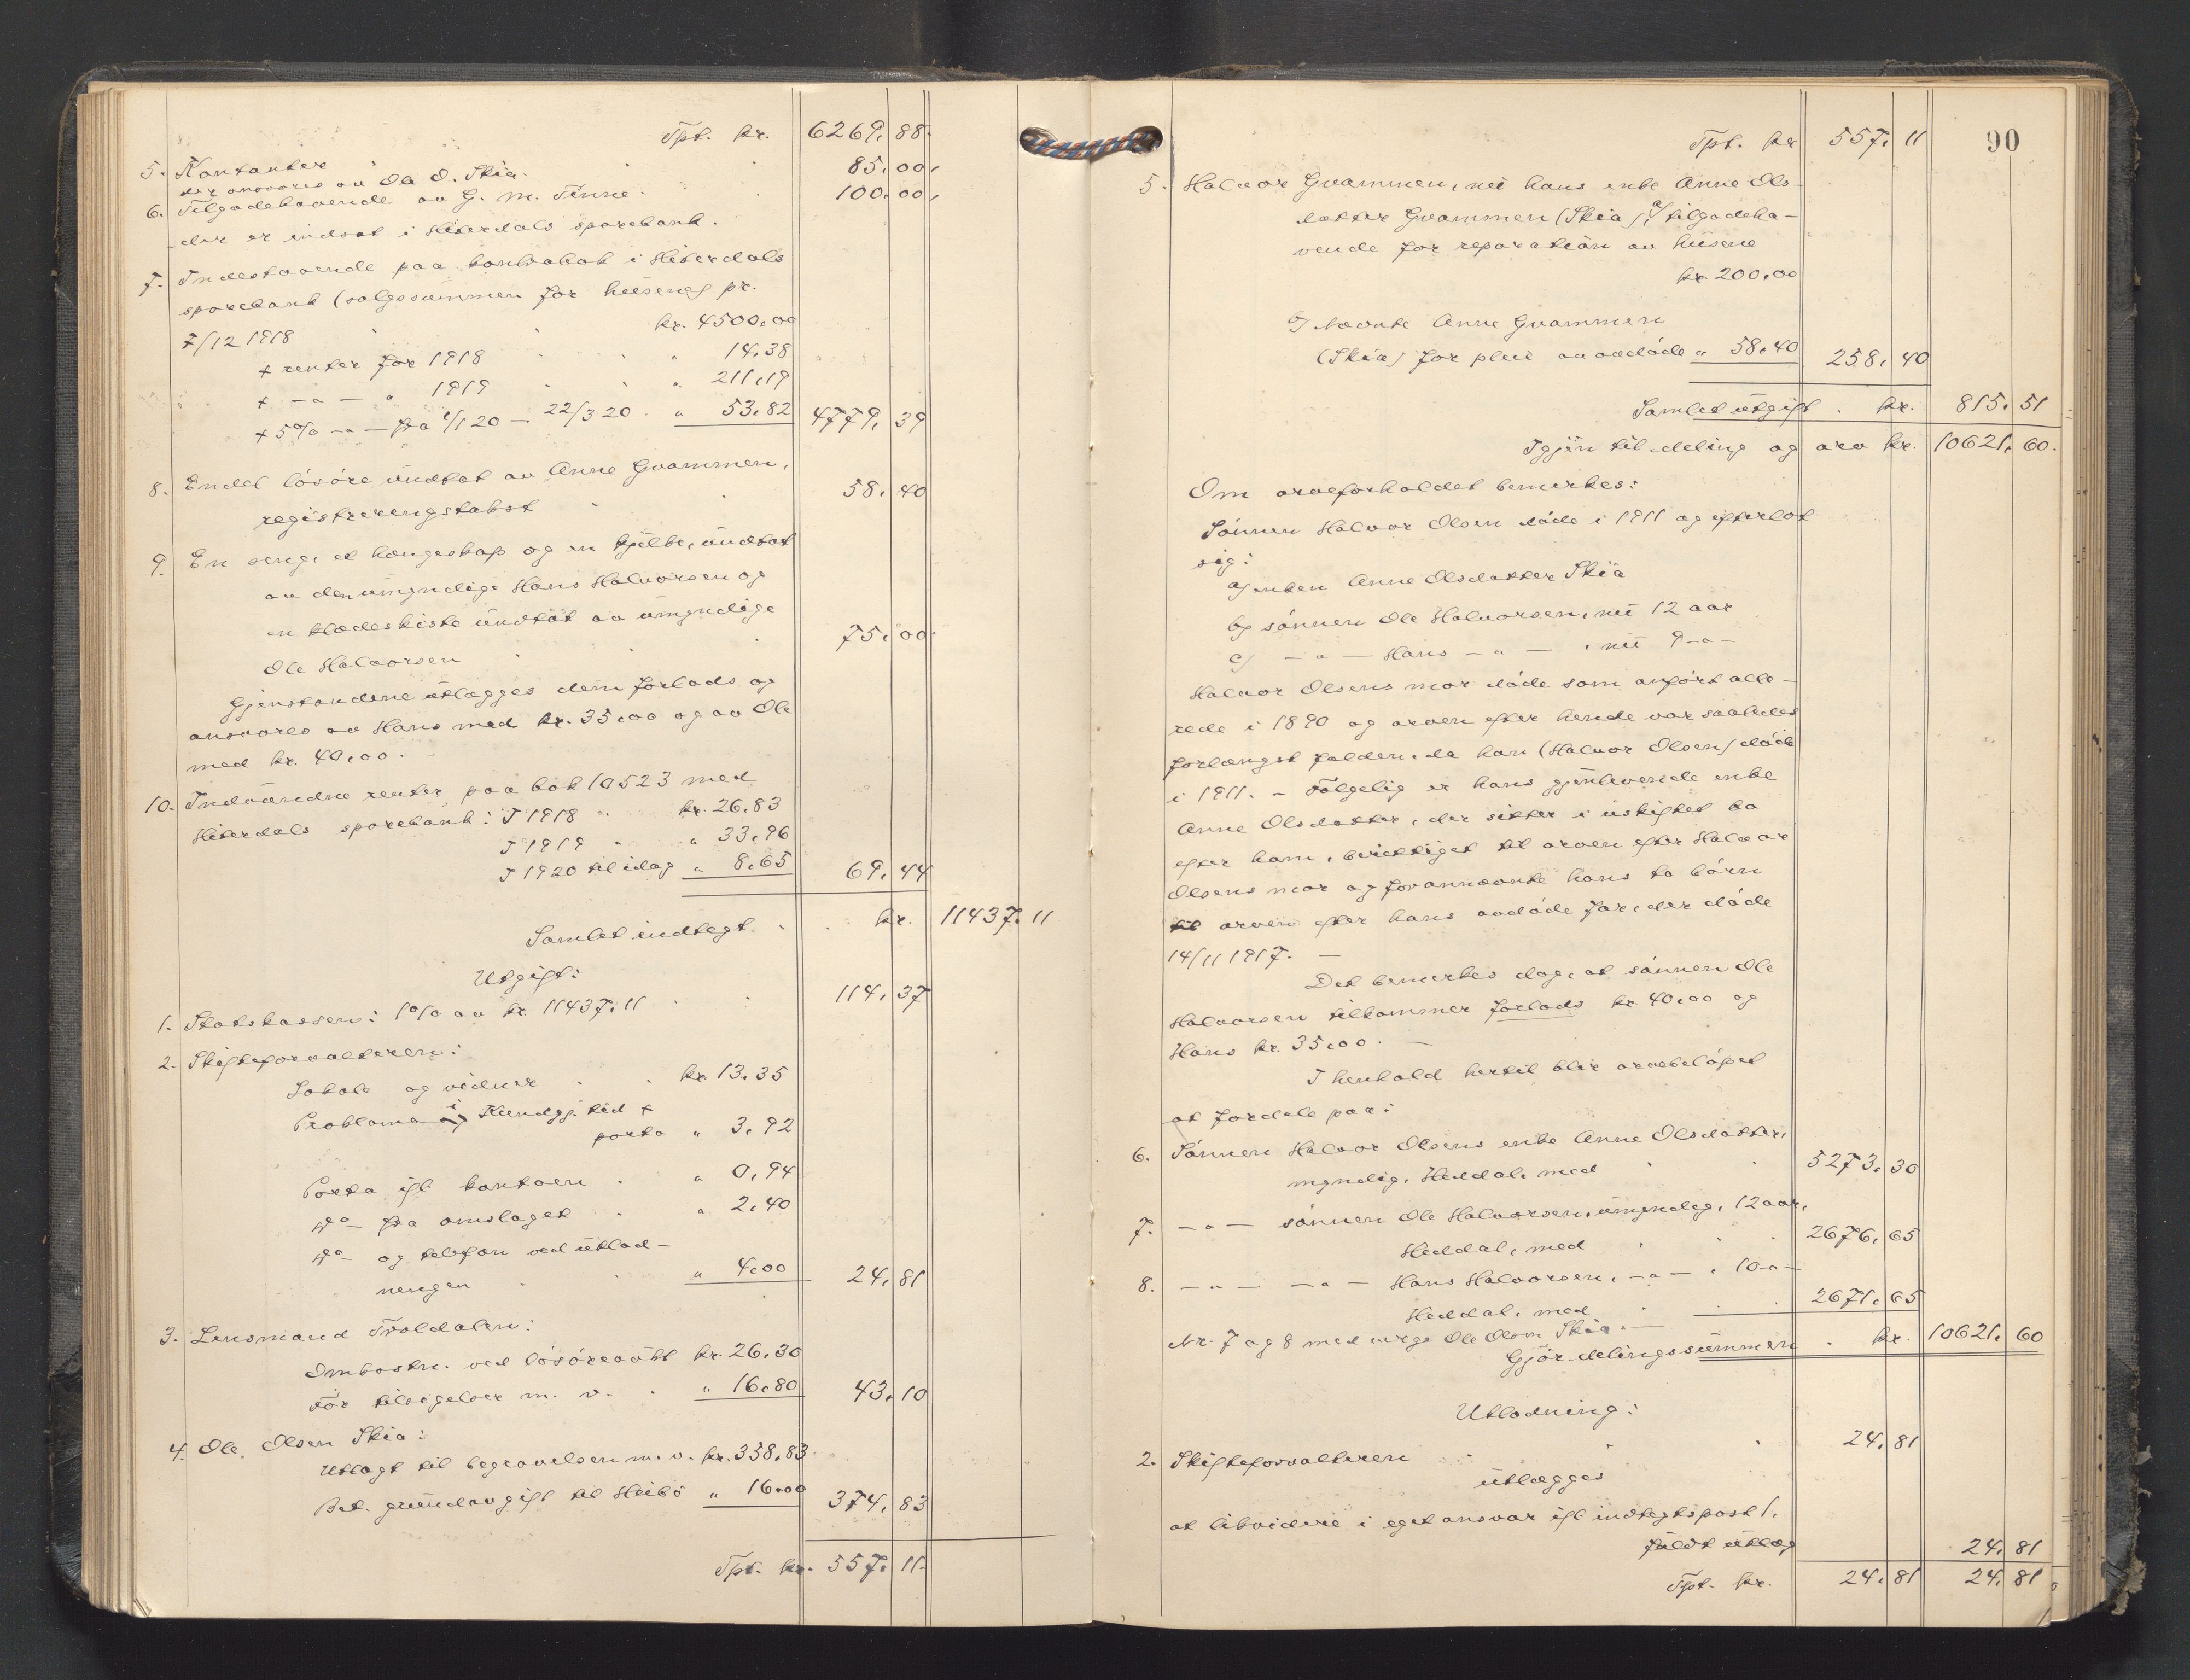 Tpt. kr. 6269,88
5. Kontanter 85,00
der ansvares av Ole O. Skia.
6. Tilgodehavende av G. M. Tinne 100,00
der er indsat i Hiterdals sparebank.
7. Indestaaende paa kontrabok i Hiterdals
sparebank (salgssummen for husene) pr.
7/12 1918 kr. 4500,00
+ renter for 1918 " 14,38
+ -"- " 1919 " 211,19
+ 5% -"- fra 1/1 20 - 22/3 20 " 53,82 4779,39
8. Endel løsøre undtat av Anne Gvammen,
registreringstakst 58,40
9. En seng, et hengeskap og en kjelke, undtat
av den umyndige Hans Halvorsen og
en klædeskiste undtat av umyndige
Ole Halvorsen 75,00
Gjenstandene utlægges dem forlods og
ansvares av Hans med kr. 35,00 og av Ole
med kr. 40,00.
10. Indvundne renter paa bok 10523 med
Hiterdals sparebank: I 1918 " kr. 26,83
I 1919 " 33,96
I 1920 til idag " 8,65 69,44
Samlet indtægt kr. 11437,11
Utgift:
1. Statskassen: 1% av kr. 11437,11 114,37
2. Skifteforvalteren:
Lokale og vidner kr. 13,35
Proklama i Kundgj. tid +
porto " 3,92
Porto ifl. kontoen " 0,94
do fra omslaget " 2,40
do og telefon ved utlod-
ningen " 4,00 24,81
3. Lensmand Troldalen:
Omkostn. ved løsøreaukt. kr. 26,30
For tilsigelser m. v. " 16,80 43,10
4. Ole Olsen Skia:
Utlagt til begravelsen m. v. kr. 358,83
Bet. grundavgift til Heibø " 16,00 374,83
Tpt. kr. 557,11
90
Tpt. kr 557,11
5. Halvor Gvammen, nu hans enke Anne Ols-
datter Gvammen (Skia), a/ tilgodeha-
vende for reparation av husene
kr. 200,00
b/ Nævnte Anne Gvammen
(Skia) for pleie av avdøde " 58,40 258,40
Samlet utgift . kr. 815,51
Igjen til deling og arv kr. 10621,60.
Om arveforholdet bemerkes:
Sønnen Halvor Olsen døde i 1911 og efterlot
sig:
a) enken Anne Olsdatter Skia
b) sønnen Ole Halvorsen, nu 12 aar
c) -"- Hans -"- , nu 9 -"-
Halvor Olsens mor døde som anført alle-
rede i 1890 og arven efter hende var saaledes
forlængst falden, da han (Halvor Olsen) døde
i 1911. - Følgelig er hans gjenlevende enke
Anne Olsdatter, der sitter i uskiftet bo
efter ham, berettiget til arven efter Halvor
Olsens mor og forannævnte hans to børn
til arven efter hans avdøde far, der døde
14/11 1917. —
Det bemerkes dog, at sønnen Ole
Halvorsen tilkommer forlods kr. 40,00 og
Hans kr. 35,00. —
I henhold hertil blir arvebeløpet
at fordele paa:
6. Sønnen Halvor Olsens enke Anne Olsdatter,
myndig, Heddal, med 5273,30
7. -"- sønnen Ole Halvorsen, umyndig, 12 aar,
Heddal, med 2676,65
8. -"- -"- Hans Halvorsen, -"- , 10 -"-
Heddal, med 2671,65
Nr. 7 og 8 med verge Ole Olsen Skia. —
Gjør delingssummen . kr. 10621,60
Utlodning:
2. Skifteforvalteren 24,81
utlægges
at likvidere i eget ansvar ifl. indtegtspost 1.
fuldt utlæg 24,81
Tpt. kr. 24,81 24,81